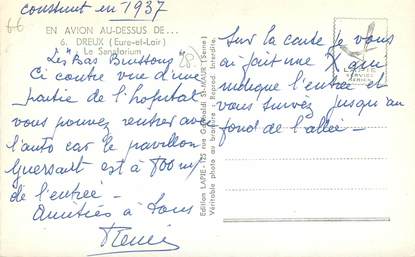 construit en 1937
66
EN AVION AU-DESSUS DE...
6. DREUX (Eure-et-Loir)
Le Sanatorium
"Les Bas Buissons"
Ci contre vue d'une
partie de l'hopital
vous pouvez rentrer avec
l'auto car le pavillon
Guersant est à 800m/
de l'entrée -
Amitiés à tous
Edition LAPIE - 125 rue Garibaldi St-MAUR (Seine)
Véritable photo au bromure : Reprod. Interdite.
Sur la carte je vous
ai fait une X qui
indique l'entrée et
vous suivez jusqu'au
fond de l'allée -
LAPIE
SERVICE
AERIEN